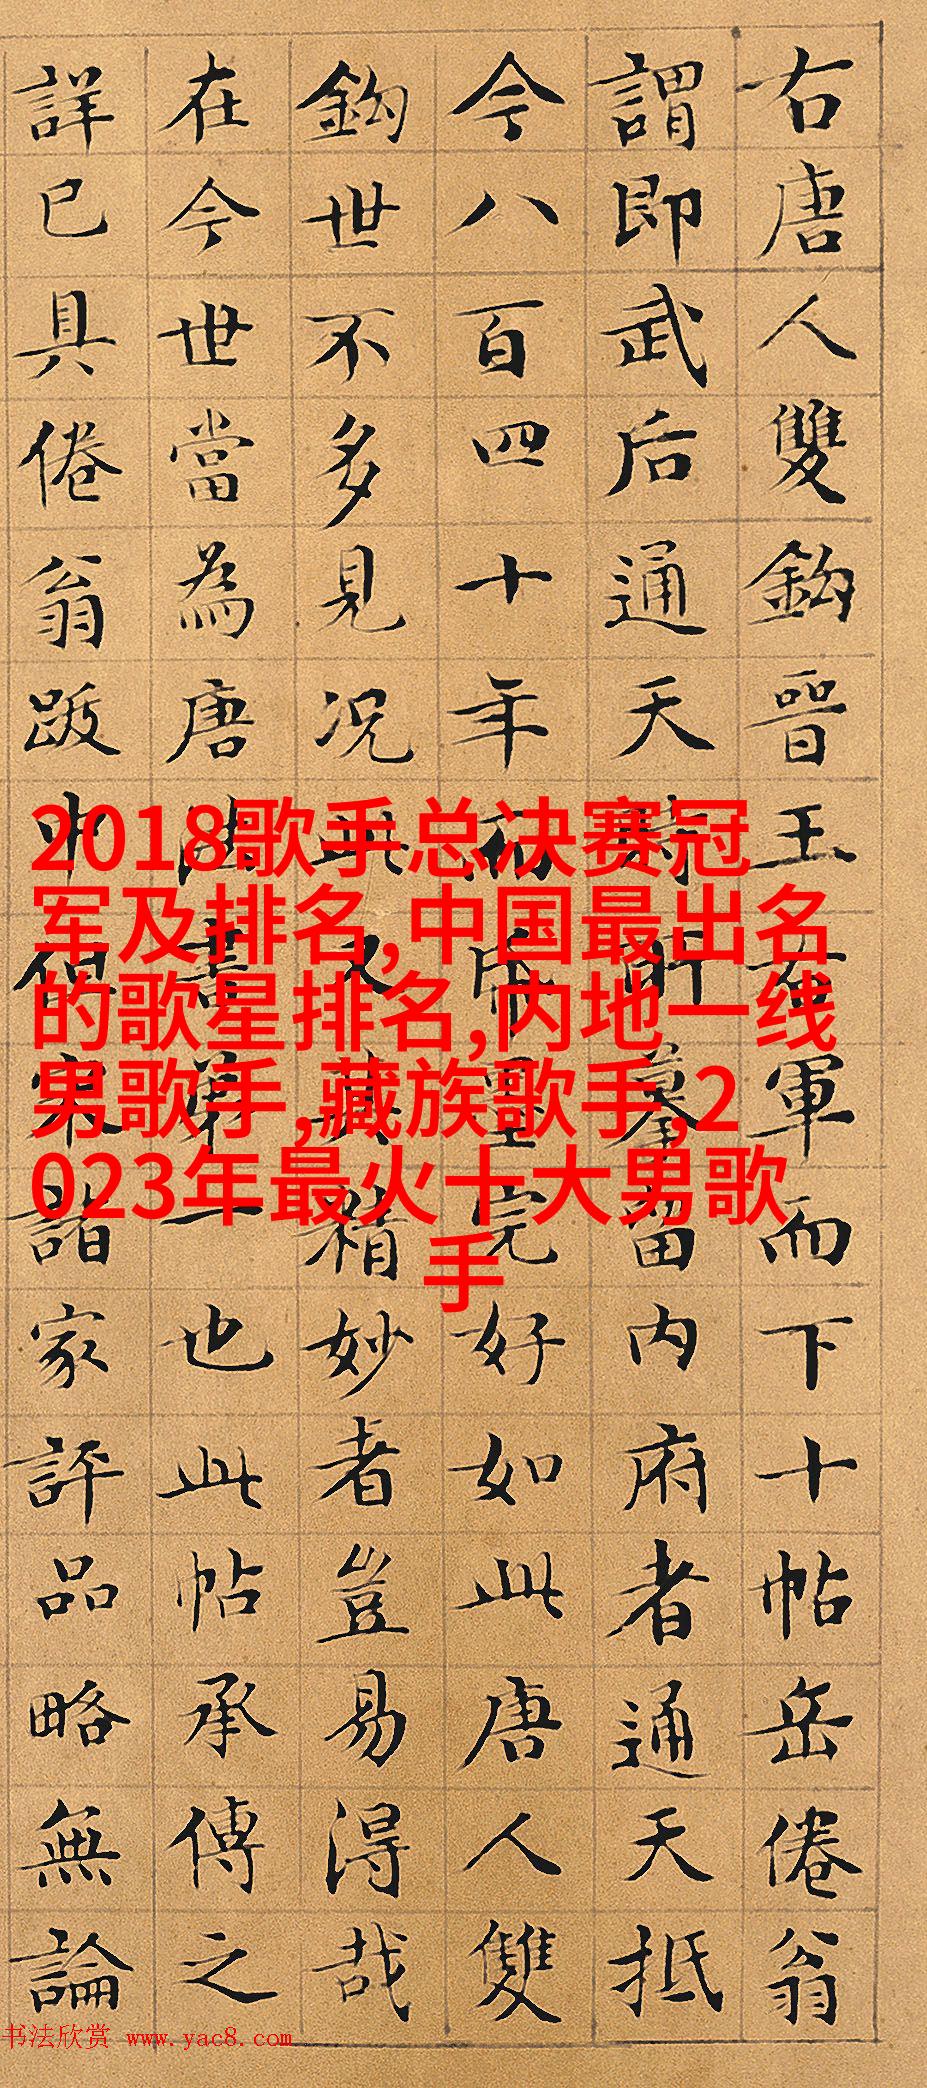 右唐人雙鈎晉王右軍而下十帖岳倦翁
謂即武后通天時所摹留内府者通天抵
今八百四十年 帋墨完好如此唐人雙
鈎世不多見况此又其精妙者豈易得哉
在今世當為唐法書第一也此帖承傳之
詳已具倦翁跋中但宋諸家評品略無論
2018歌手总决赛冠
军及排名,中国最出名
的歌星排名,内地一线
男歌手,藏族歌手,2
023年最火十大男歌
手
书法欣赏 www.yac8.com